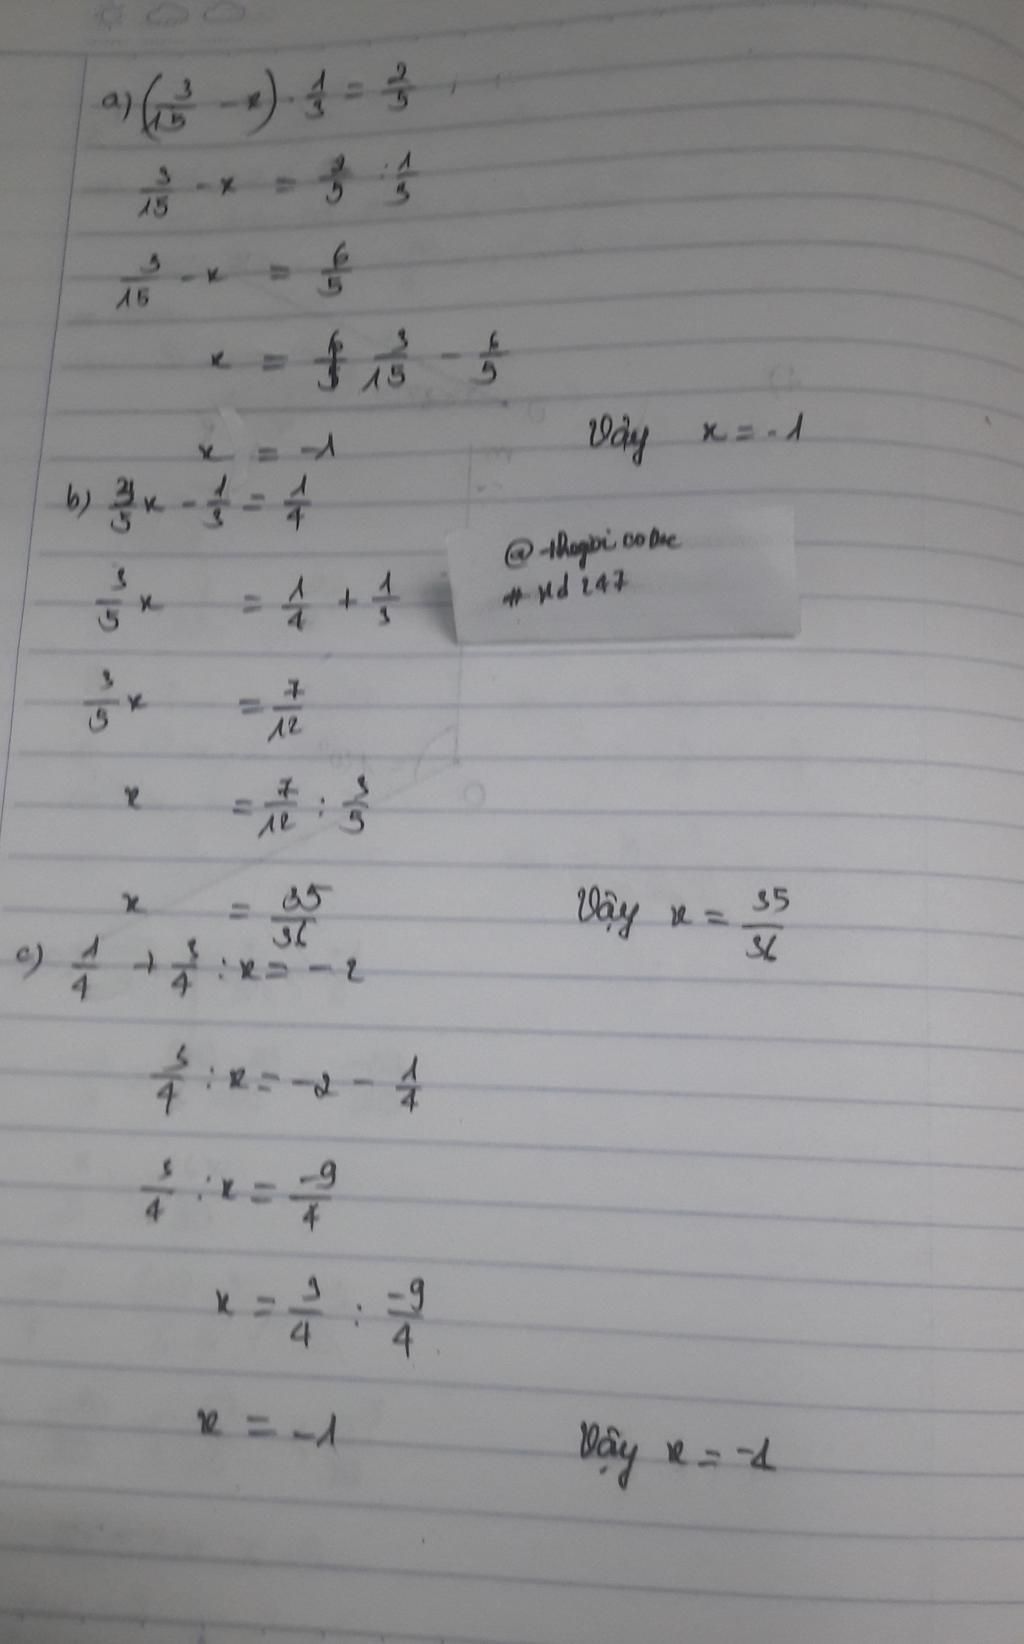 a) (3/15 - x) . 1/3 = 2/5
3/15 - x = 2/5 : 1/3
3/15 - x = 6/5
x = 3/15 - 6/5
x = -1 Vậy x = -1
b) 3/5 x - 1/3 = 1/4
3/5 x = 1/4 + 1/3
# xd 247
3/5 x = 7/12
x = 7/12 : 3/5
x = 35/36 Vậy x = 35/36
c) 1/4 + 3/4 : x = -2
3/4 : x = -2 - 1/4
3/4 : x = -9/4
x = 3/4 : -9/4
x = -1 Vậy x = -1